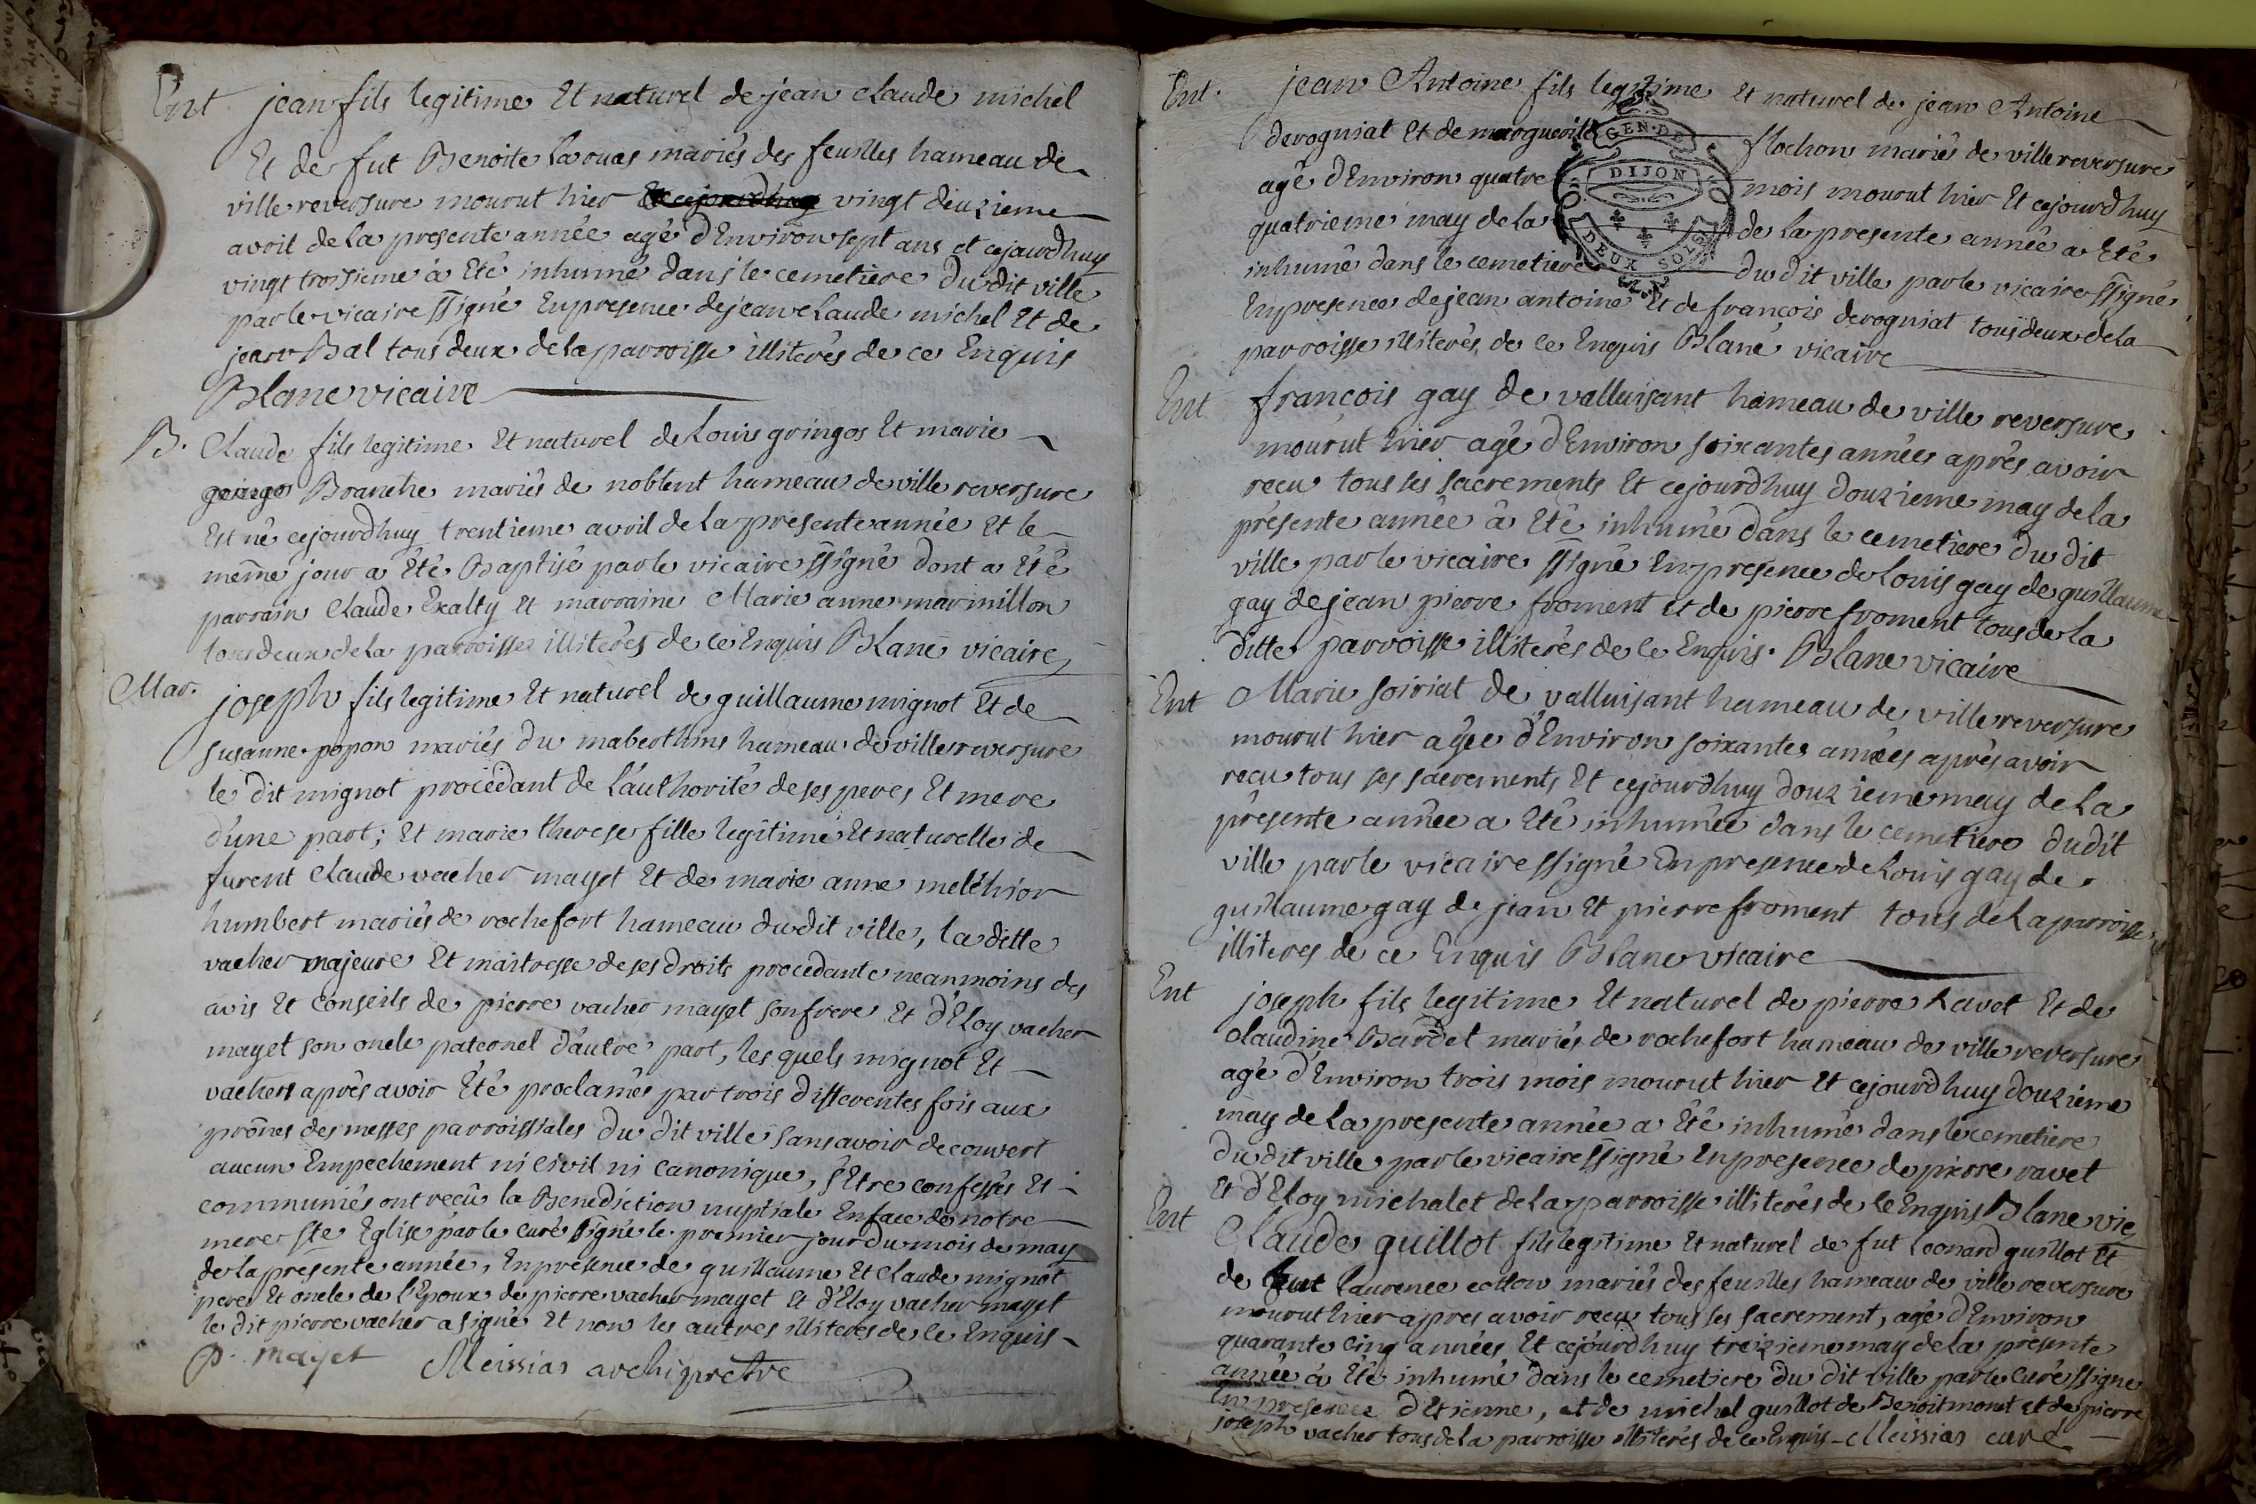 Ent jean fils legitime Et naturel de jean claude michel
Et de fut Benoite Laruas mariés des feuilles hameau de
ville reversure mourut hier vingt deuzieme
avril de La presente année agé d'Environ sept ans et cejourdhuy
vingt troisieme à Eté inhumé dans le cemetiere du dit ville
par le vicaire ssigné En presence de jean claude michel Et de
jean Bal tous deux de la parroisse illiterés de ce Enquis
Blanc vicaire
B. Claude fils legitime Et naturel de Louis gringos Et marie
gringos Branche mariés de noblent hameau de ville reversure
Est né cejourdhuy trentieme avril de La presente année Et le
meme jour a Eté Baptisé par le vicaire ssigné dont a Eté
parrain Claude Exalty Et marraine Marie anne marmillon
tous deux de La parroisse illiterés de ce Enquis Blanc vicaire
Mar. joseph fils legitime Et naturel de guillaume mignot Et de
susanne popon mariés du maberthins hameau de ville reversure
le dit mignot procedant de L'authorité de ses peres Et mere
d'une part; Et marie therese fille legitime Et naturelle de
furent Claude vacher mayet Et de marie anne melchior
humbert mariés de rochefort hameau du dit ville, la ditte
vacher majeure Et maitresse de ses droits procedante neanmoins des
avis Et conseils de pierre vacher mayet son frere Et d'Eloy vacher
mayet son oncle paternel d'autre part, les quels mignot Et
vacher après avoir Eté proclamés par trois differentes fois aux
prônes des messes parroissiales du dit ville sans avoir decouvert
aucun Empechement ni civil ni canonique, s'Etre confessés Et
communiés ont recû la Benediction nuptiale En face de notre
mere ste Eglise par le curé signé le premier jour du mois de may
de la presente année, En presence de guillaume Et claude mignot
pere Et oncle de l'Epoux de pierre vacher mayet Et d'Eloy vacher mayet
le dit pierre vacher a signé Et non les autres illiteres de ce Enquis
p. mayet Meissias archiprêtre
Ent. jean Antoine fils legitime Et naturel de jean Antoine
derogniat Et de marguerite flochon mariés de ville reversure
agé d'Environ quatre mois mourut hier Et cejourdhuy
quatrieme may de la de la presente année a Eté
inhumé dans le cemetiere du dit ville par le vicaire ssigné
En presence de jean antoine Et de françois derogniat tous deux de la
parroisse illiterés de ce Enquis Blanc vicaire
GEN. DE
DIJON
DEUX SOLS
Ent françois gay de valluisant hameau de ville reversure
mourut hier agé d'Environ soixantes années après avoir
recu tous ses sacrements Et cejourdhuy douzieme may de la
présente année à Eté inhumé dans le cemetiere du dit
ville par le vicaire ssigné En presence de Louis gay de guillaume
gay de jean pierre froment et de pierre froment tous de la
ditte parroisse illiterés de ce Enquis. Blanc vicaire
Ent Marie soiriat de valluisant hameau de ville reversure
mourut hier agée d'Environ soixantes années après avoir
recu tous ses sacrements Et cejourdhuy douzieme may de La
présente année a Eté inhumée dans le cemetiere du dit
ville par le vicaire ssigné En presence de Louis gay de
guillaume gay de jean Et pierre froment tous de La parroisse
illiteres de ce Enquis Blanc vicaire
Ent joseph fils legitime Et naturel de pierre Ravet Et de
claudine Bardet mariés de rochefort hameau de ville reversure
agé d'Environ trois mois mourut hier Et cejourdhuy douzieme
may de La presente année a Eté inhumé dans le cemetiere
du dit ville par le vicaire ssigné En presence de pierre ravet
Et d'Eloy michalet de la parroisse illiterés de ce Enquis Blanc vic
Ent Claude guillot fils legitime Et naturel de fut Leonard guillot Et
de laurence cotton mariés des feuilles hameau de ville reversure
mourut hier apres avoir recu tous ses sacrement, agé d'Environ
quarante cinq années Et cejourdhuy treizieme may de la presente
année à Eté inhumé dans le cemetiere du dit ville par le curé ssigné
En presence d'Etienne, et de michel guillot de Benoit monet et de pierre
joseph vacher tous de La parroisse illiterés de ce Enquis Meissias curé